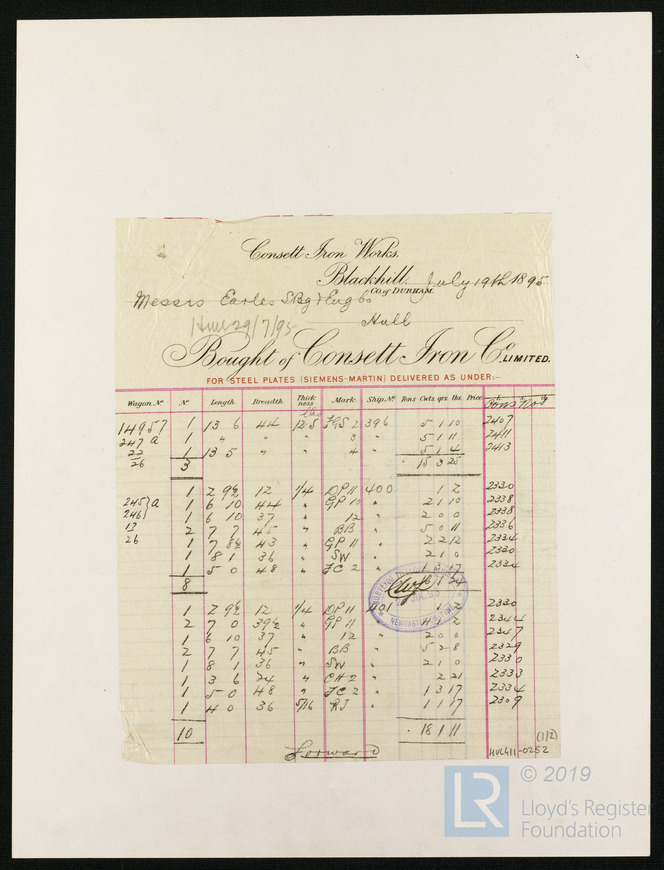 Consett Iron Works.
Blackhill. July 19th 1895
Co. of DURHAM.
Messrs Earles SBg & Eng Co
Hull
29/7/95
Bought of Consett Iron Co. LIMITED.
FOR STEEL PLATES (SIEMENS-MARTIN) DELIVERED AS UNDER:-
Wagon. No Nº Length Breadth Thickness Mark. Ship. Nº Tons Cwts qrs. lbs. Price
lbs
14957 1 13 6 44 12.5 FGS 2 396 5 1 10 2407
247 a 1 " " " " 3 " 5 1 11 2411
22 1 13 5 " " 4 " 5 1 4 2413
26 3 15 3 25
1 2 9½ 12 1/4 DP 11 400 1 2 2330
245 } a 1 6 10 44 " GP 10 " 2 1 10 2338
246 } 1 6 10 37 " 12 " 2 0 0 2338
13 2 7 7 45 " BB " 5 0 11 2336
26 1 7 8½ 43 " GP 11 " 2 2 12 2334
1 8 1 36 " SW " 2 1 0 2330
1 5 0 48 " FC 2 " 1 3 17 2334
8
1 2 9½ 12 1/4 DP 11 401 1 2 2330
2 7 0 39½ " GP 11 " 2344
1 6 10 37 " 12 " 2 0 0 2347
2 7 7 45 " BB " 5 2 8 2329
1 8 1 36 " SW " 2 1 0 2330
1 3 6 24 " CH 2 " 2 21 2333
1 5 0 48 " FC 2 " 1 3 17 2334
1 4 0 36 5/16 RJ " 1 1 17 2309
10 18 1 11
Forward
(1/2)
HUL411-0252
LR
© 2019
Lloyd's Register
Foundation